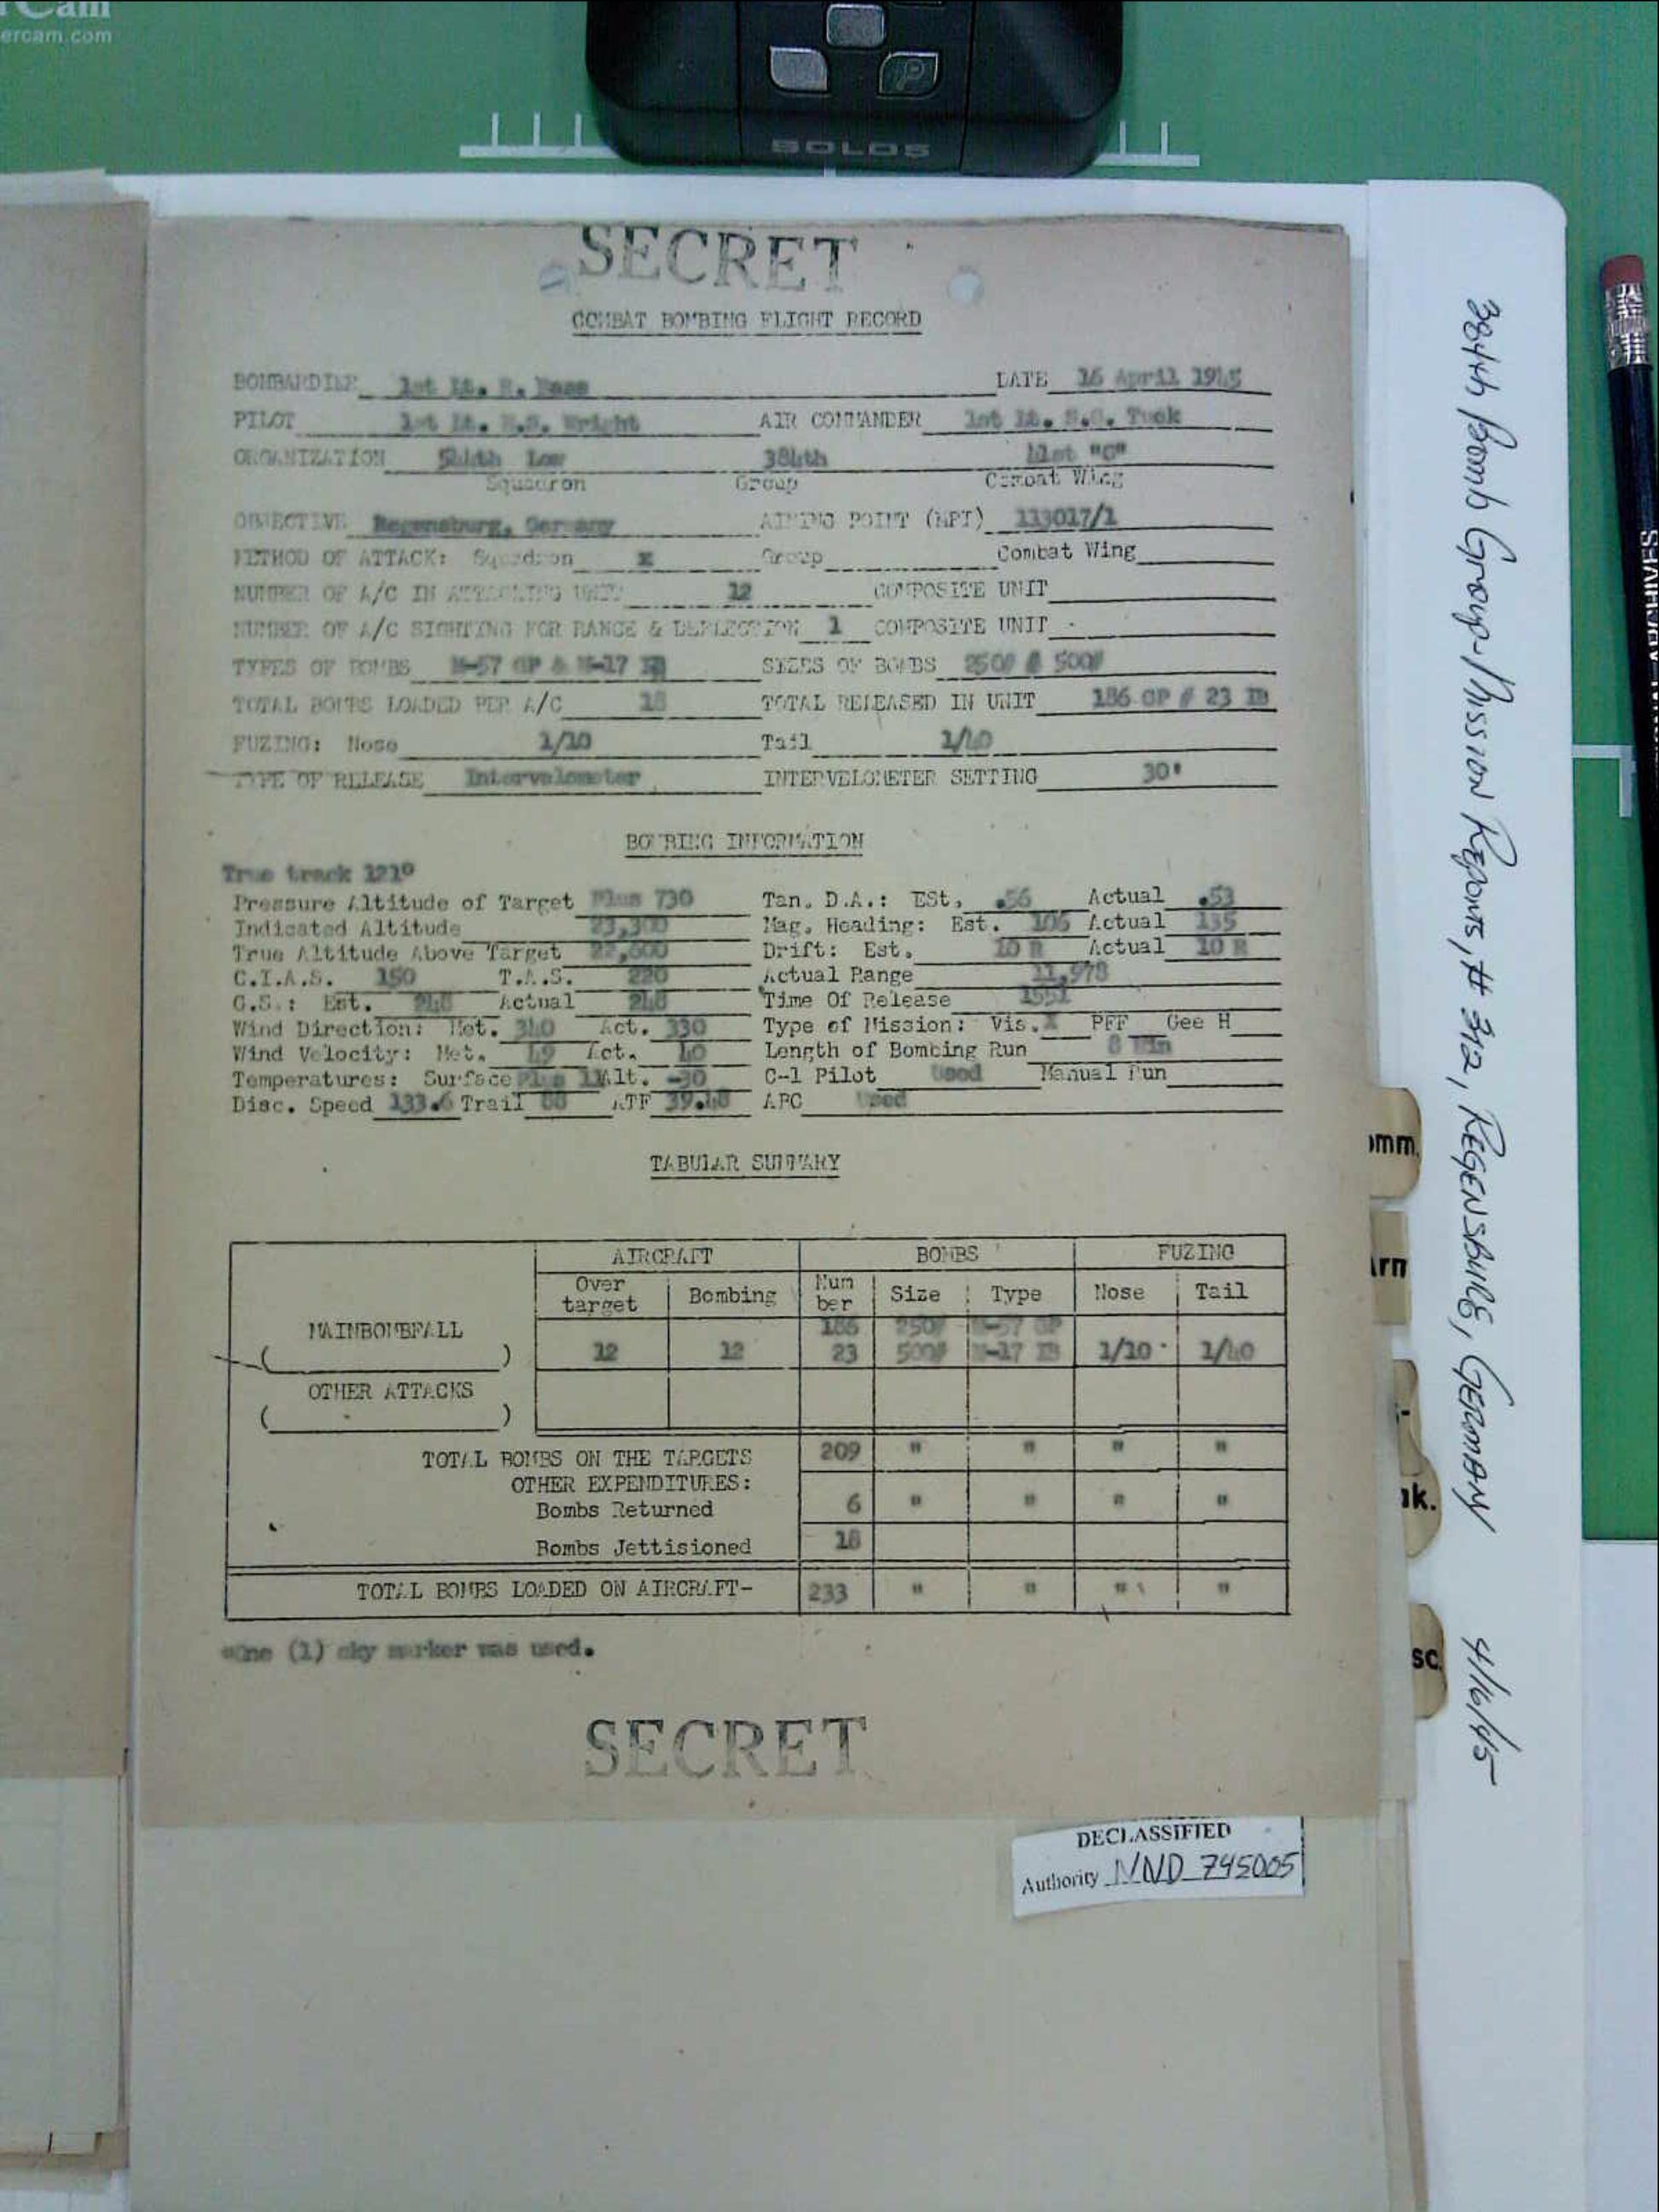 Cam
ercam.com
BOLDS
SECRET
COMBAT BOMBING FLIGHT RECORD
BOMBARDIER 1st Lt. R. DATE 16 April 1945
PILOT 1st Lt. Wright AIR COMMANDER 1st Lt. Tuck
ORGANIZATION 544th Low 384th 41st "C"
Squadron Group Combat Wing
OBJECTIVE Regensburg, Germany AIMING POINT (MPI) 113017/1
METHOD OF ATTACK: Squadron X Group Combat Wing
NUMBER OF A/C IN ATTACKING UNIT 12 COMPOSITE UNIT
NUMBER OF A/C SIGHTING FOR RANGE & DEFLECTION 1 COMPOSITE UNIT -
TYPES OF BOMBS M-57 GP & M-17 IB SIZES OF BOMBS 250# & 500#
TOTAL BOMBS LOADED PER A/C 18 TOTAL RELEASED IN UNIT 186 GP # 23 IB
FUZING: Nose 1/10 Tail 1/40
TYPE OF RELEASE Intervelometer INTERVELOMETER SETTING 30'
BOMBING INFORMATION
True track 121°
Pressure Altitude of Target Plus 730 Tan. D.A.: Est. .56 Actual .53
Indicated Altitude 23,300 Mag. Heading: Est. 106 Actual 135
True Altitude Above Target 22,600 Drift: Est. 10 R Actual 10 R
C.I.A.S. 150 T.A.S. 220 Actual Range 11,978
G.S.: Est. 248 Actual 248 Time Of Release 1551
Wind Direction: Met. 340 Act. 330 Type of Mission: Vis. X PFF Gee H
Wind Velocity: Met. 49 Act. 40 Length of Bombing Run 8 Min
Temperatures: Surface Plus 11 Alt. -30 C-1 Pilot Used Manual Run
Disc. Speed 133.6 Trail 88 ATF 39.48 AFC Used
TABULAR SUMMARY
AIRCRAFT BOMBS FUZING
Over target Bombing Num ber Size Type Nose Tail
MAINBOMBFALL 186 250# M-57 GP
( ) 12 12 23 500# M-17 IB 1/10 1/40
OTHER ATTACKS
( )
TOTAL BOMBS ON THE TARGETS 209 " " " "
OTHER EXPENDITURES:
Bombs Returned 6 " " " "
Bombs Jettisioned 18
TOTAL BOMBS LOADED ON AIRCRAFT- 233 " " " "
*One (1) sky marker was used.
SECRET
DECLASSIFIED
Authority NND 745005
384th Bomb Group-Mission Reports, # 312, REGENSBURG, GERMANY 4/16/45
omm.
Arm
ak.
sc.
ARCHIVES